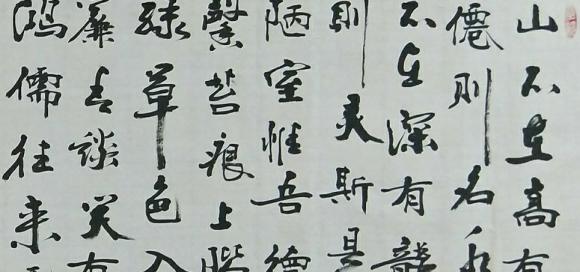 山不在高有
僊则名水
不在深有龍
则灵斯是
陋室惟吾德
馨苔痕上階
绿草色入
簾青谈笑有
鸿儒往来